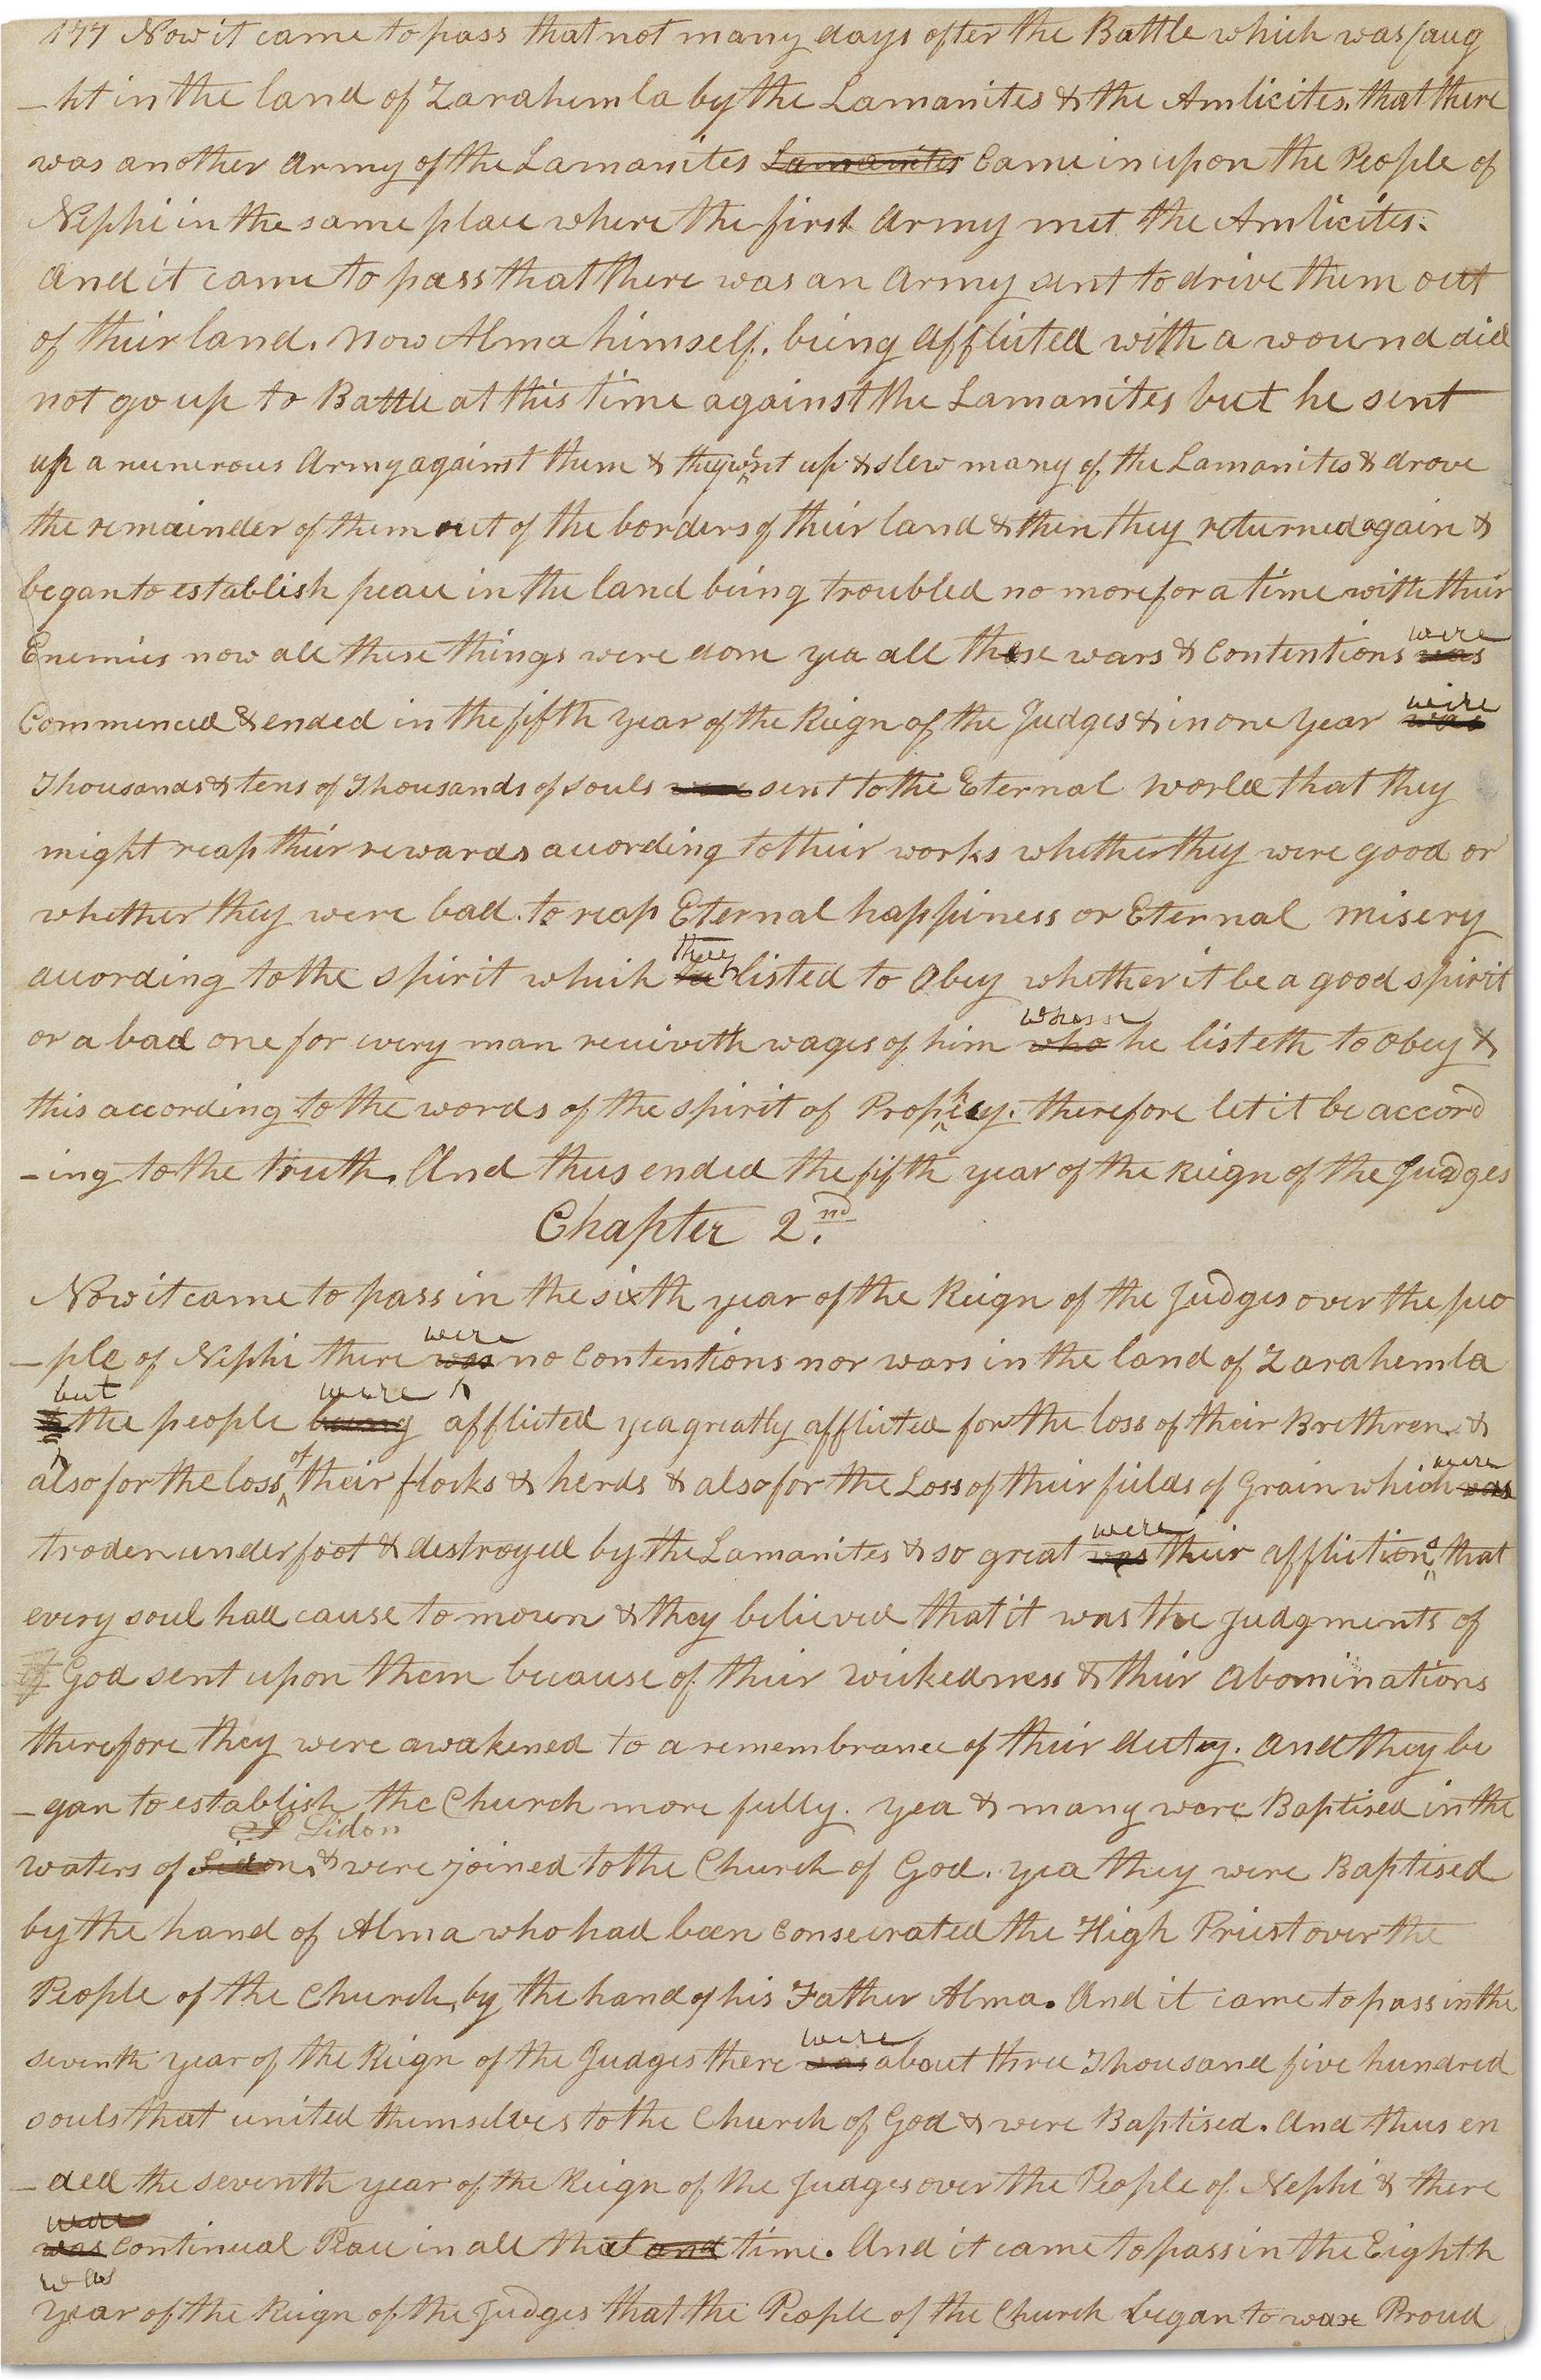 177 Now it came to pass that not many days after the Battle which was faug
-ht in the land of Zarahemla by the Lamanites & the Amlicites. that there
was another Army of the Lamanites Lamanites Came in upon the People of
Nephi in the same place where the first Army met the Amlicites.
And it came to pass that there was an Army sent to drive them out
of their land. Now Alma himself. being Afflicted with a wound did
not go up to Battle at this time against the Lamanites but he sent
up a numerous Army against them & they went up & slew many of the Lamanites & drove
the remainder of them out of the borders of their land & then they returned again &
began to establish peace in the land being troubled no more for a time with their
were
Enemies now all these things were done yea all these wars & Contentions was
were
Commenced & ended in the fifth Year of the Reign of the Judges & in one Year was
Thousands & tens of Thousands of souls sent to the Eternal World that they
might reap their rewards according to their works whether they were good or
whether they were bad. to reap Eternal happiness or Eternal misery
they
according to the spirit which listed to Obey whether it be a good spirit
whom
or a bad one for every man receiveth wages of him who he listeth to Obey &
this according to the words of the spirit of Prophecy. therefore let it be accord
-ing to the truth. And thus ended the fifth year of the Reign of the Judges
Chapter 2.nd
Now it came to pass in the sixth year of the Reign of the Judges over the peo
were
-ple of Nephi there was no Contentions nor wars in the land of Zarahemla
but were
the people being afflicted yea greatly afflicted for the loss of their Brethren &
of were
also for the loss their flocks & herds & also for the Loss of their fields of Grain which was
were
troden under foot & destroyed by the Lamanites & so great was their afflictions that
every soul had cause to mourn & they believed that it was the Judgments of
of God sent upon them because of their wickedness & their Abominations
therefore they were awakened to a remembrance of their duty. And they be
-gan to establish the Church more fully. yea & many were Baptised in the
S Sidon
waters of Sidon & were joined to the Church of God. yea they were Baptised
by the hand of Alma who had been Consecrated the High Priest over the
People of the Church, by the hand of his Father Alma. And it came to pass in the
were
seventh year of the Reign of the Judges there was about three Thousand five hundred
souls that united themselves to the Church of God & were Baptised. And thus en
-ded the seventh year of the Reign of the Judges over the People of Nephi & there
were
was Continual Peace in all that and time. And it came to pass in the Eighth
was
Year of the Reign of the Judges that the People of the Church began to wax Proud